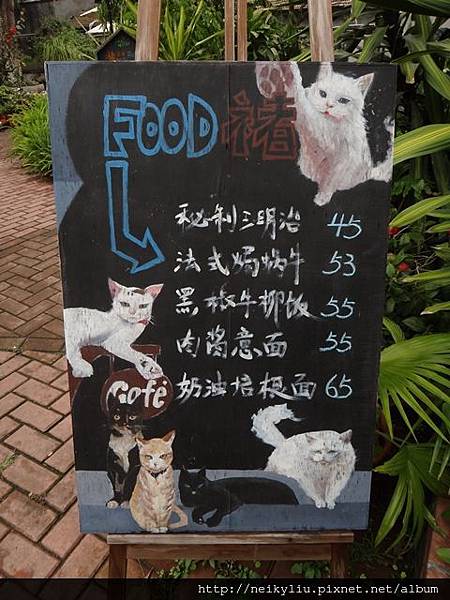 FOOD 褚
秘制三明治 45
法式焗蜗牛 53
黑椒牛柳饭 55
肉酱意面 55
奶油培根面 65
Café
http://neikyliu.pixnet.net/album